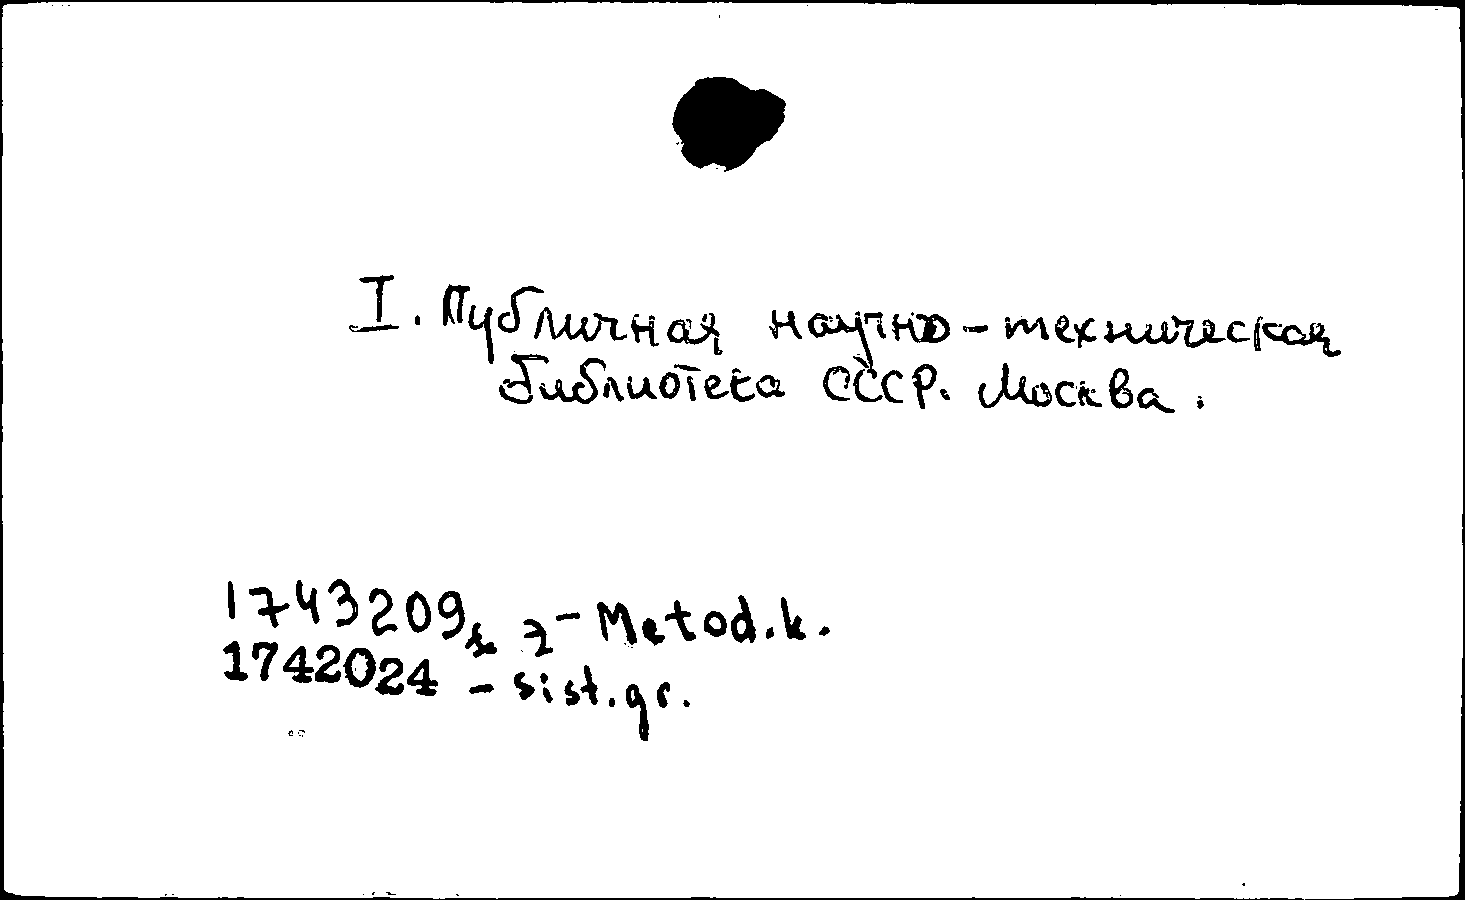 I. Публичная научно-техническая
библиотека СССР. Москва.
1743209 - Metod.k.
1742024 - sist.gr.